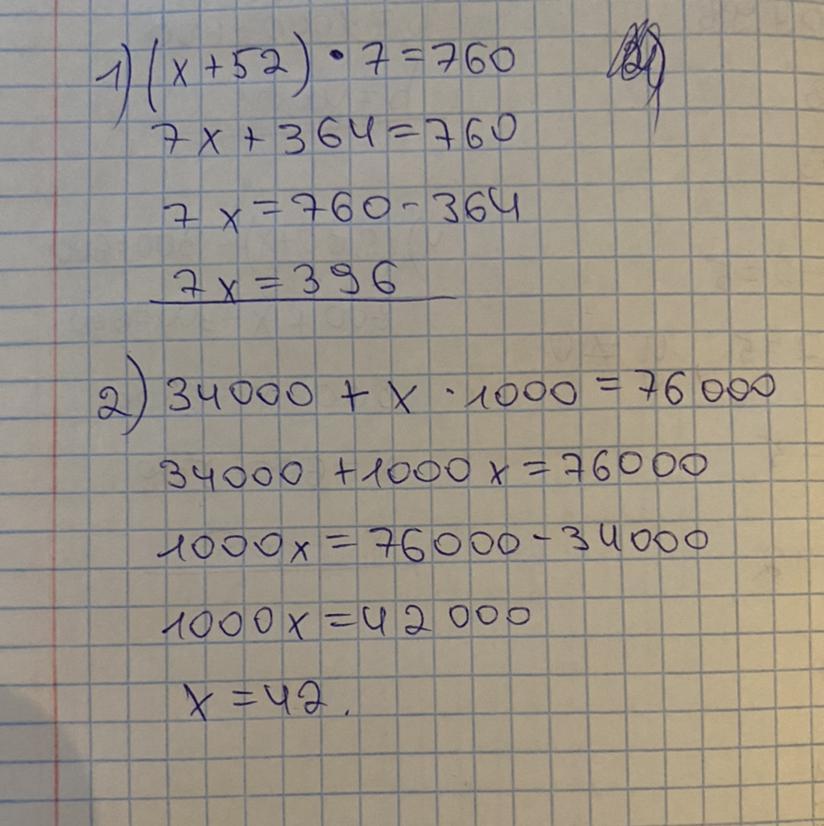 1) (x+52)·7=760
7x+364=760
7x=760-364
7x=396
2) 34000+x·1000=76000
34000+1000x=76000
1000x=76000-34000
1000x=42000
x=42.